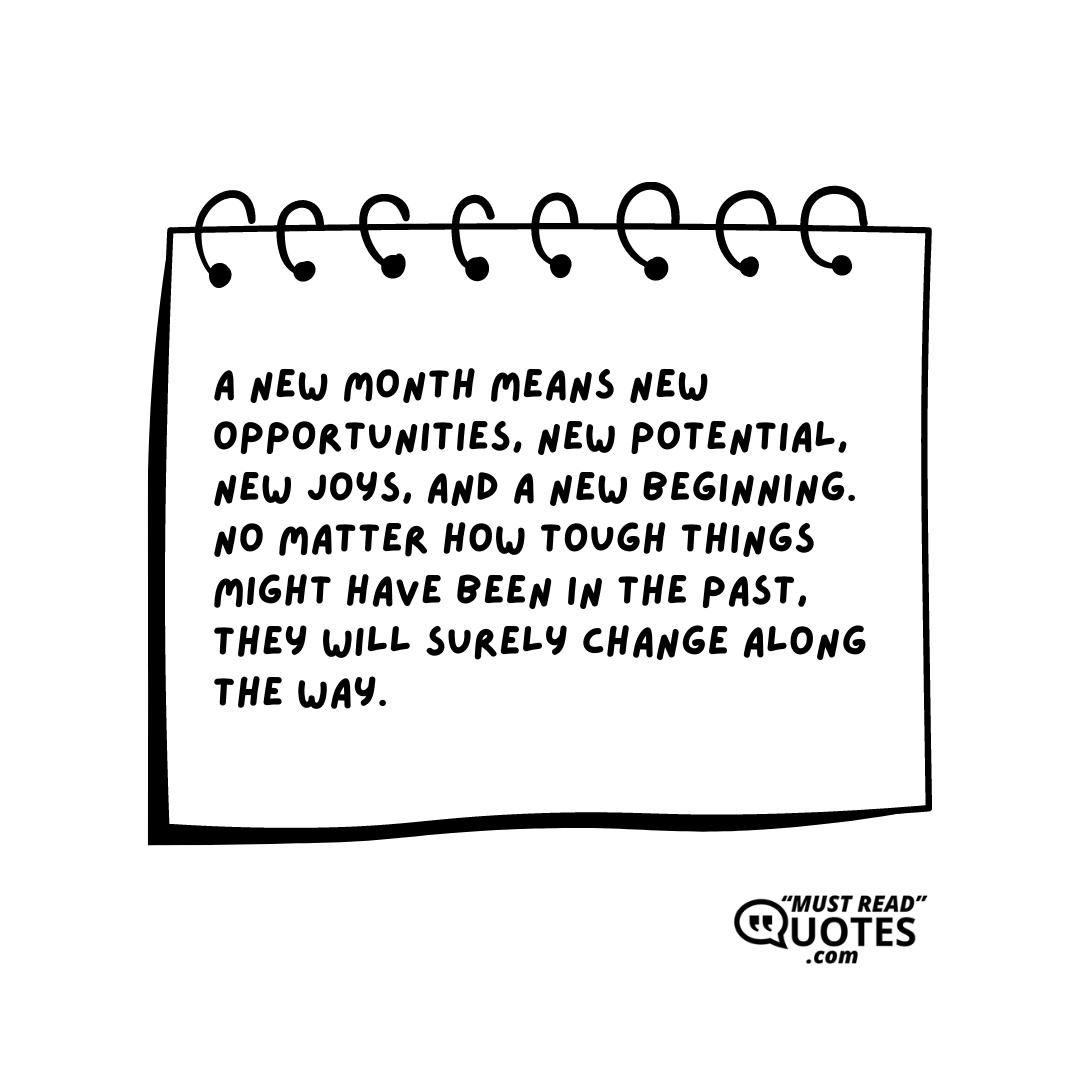 A NEW MONTH MEANS NEW
OPPORTUNITIES, NEW POTENTIAL,
NEW JOYS, AND A NEW BEGINNING.
NO MATTER HOW TOUGH THINGS
MIGHT HAVE BEEN IN THE PAST,
THEY WILL SURELY CHANGE ALONG
THE WAY.
“MUST READ”
QUOTES
.com